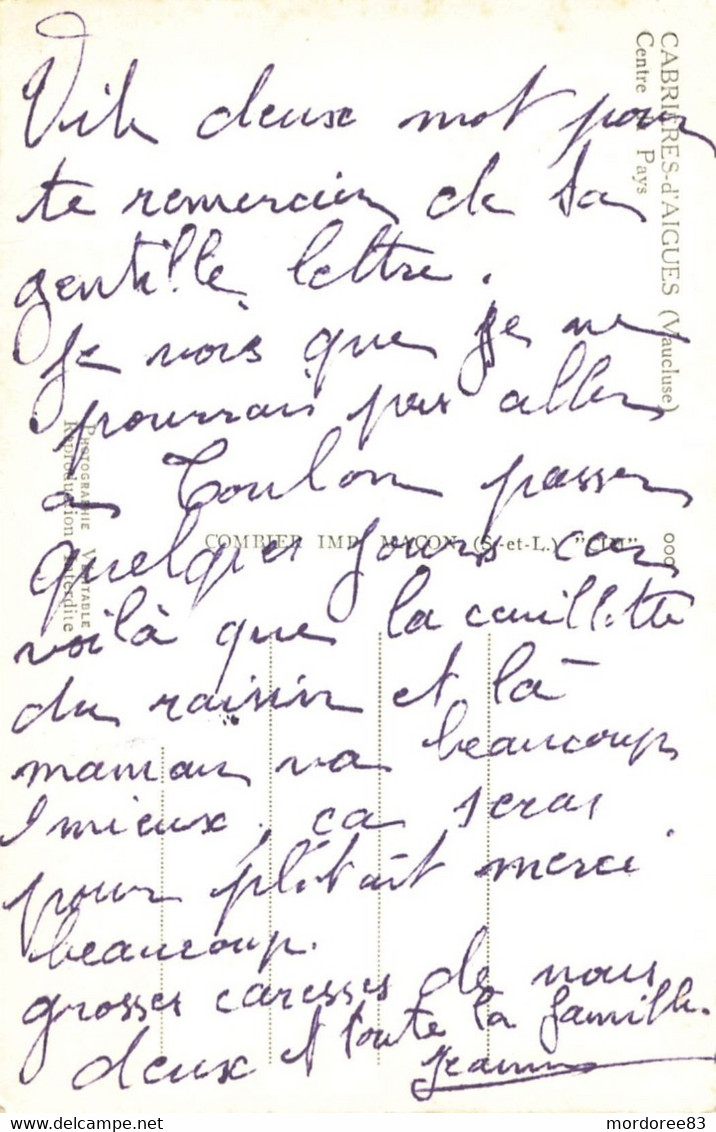 Vite deux mot pour
te remercier de ta
gentille lettre.
Je vois que je ne
pourrais pas aller
à Toulon passer
quelques jours car
voilà que la cueillette
du raisin et là
maman va beaucoup
mieux, ça seras
pour plutart merci
beaucoup.
grosses caresses de nous
deux et toute la famille.
Jeanne
CABRIÈRES-d'AIGUES (Vaucluse)
Centre du Pays
COMBIER IMP. MACON (S.-et-L.) "CIM"
PHOTOGRAPHIE VÉRITABLE
Reproduction Interdite
www.delcampe.net
mordoree83